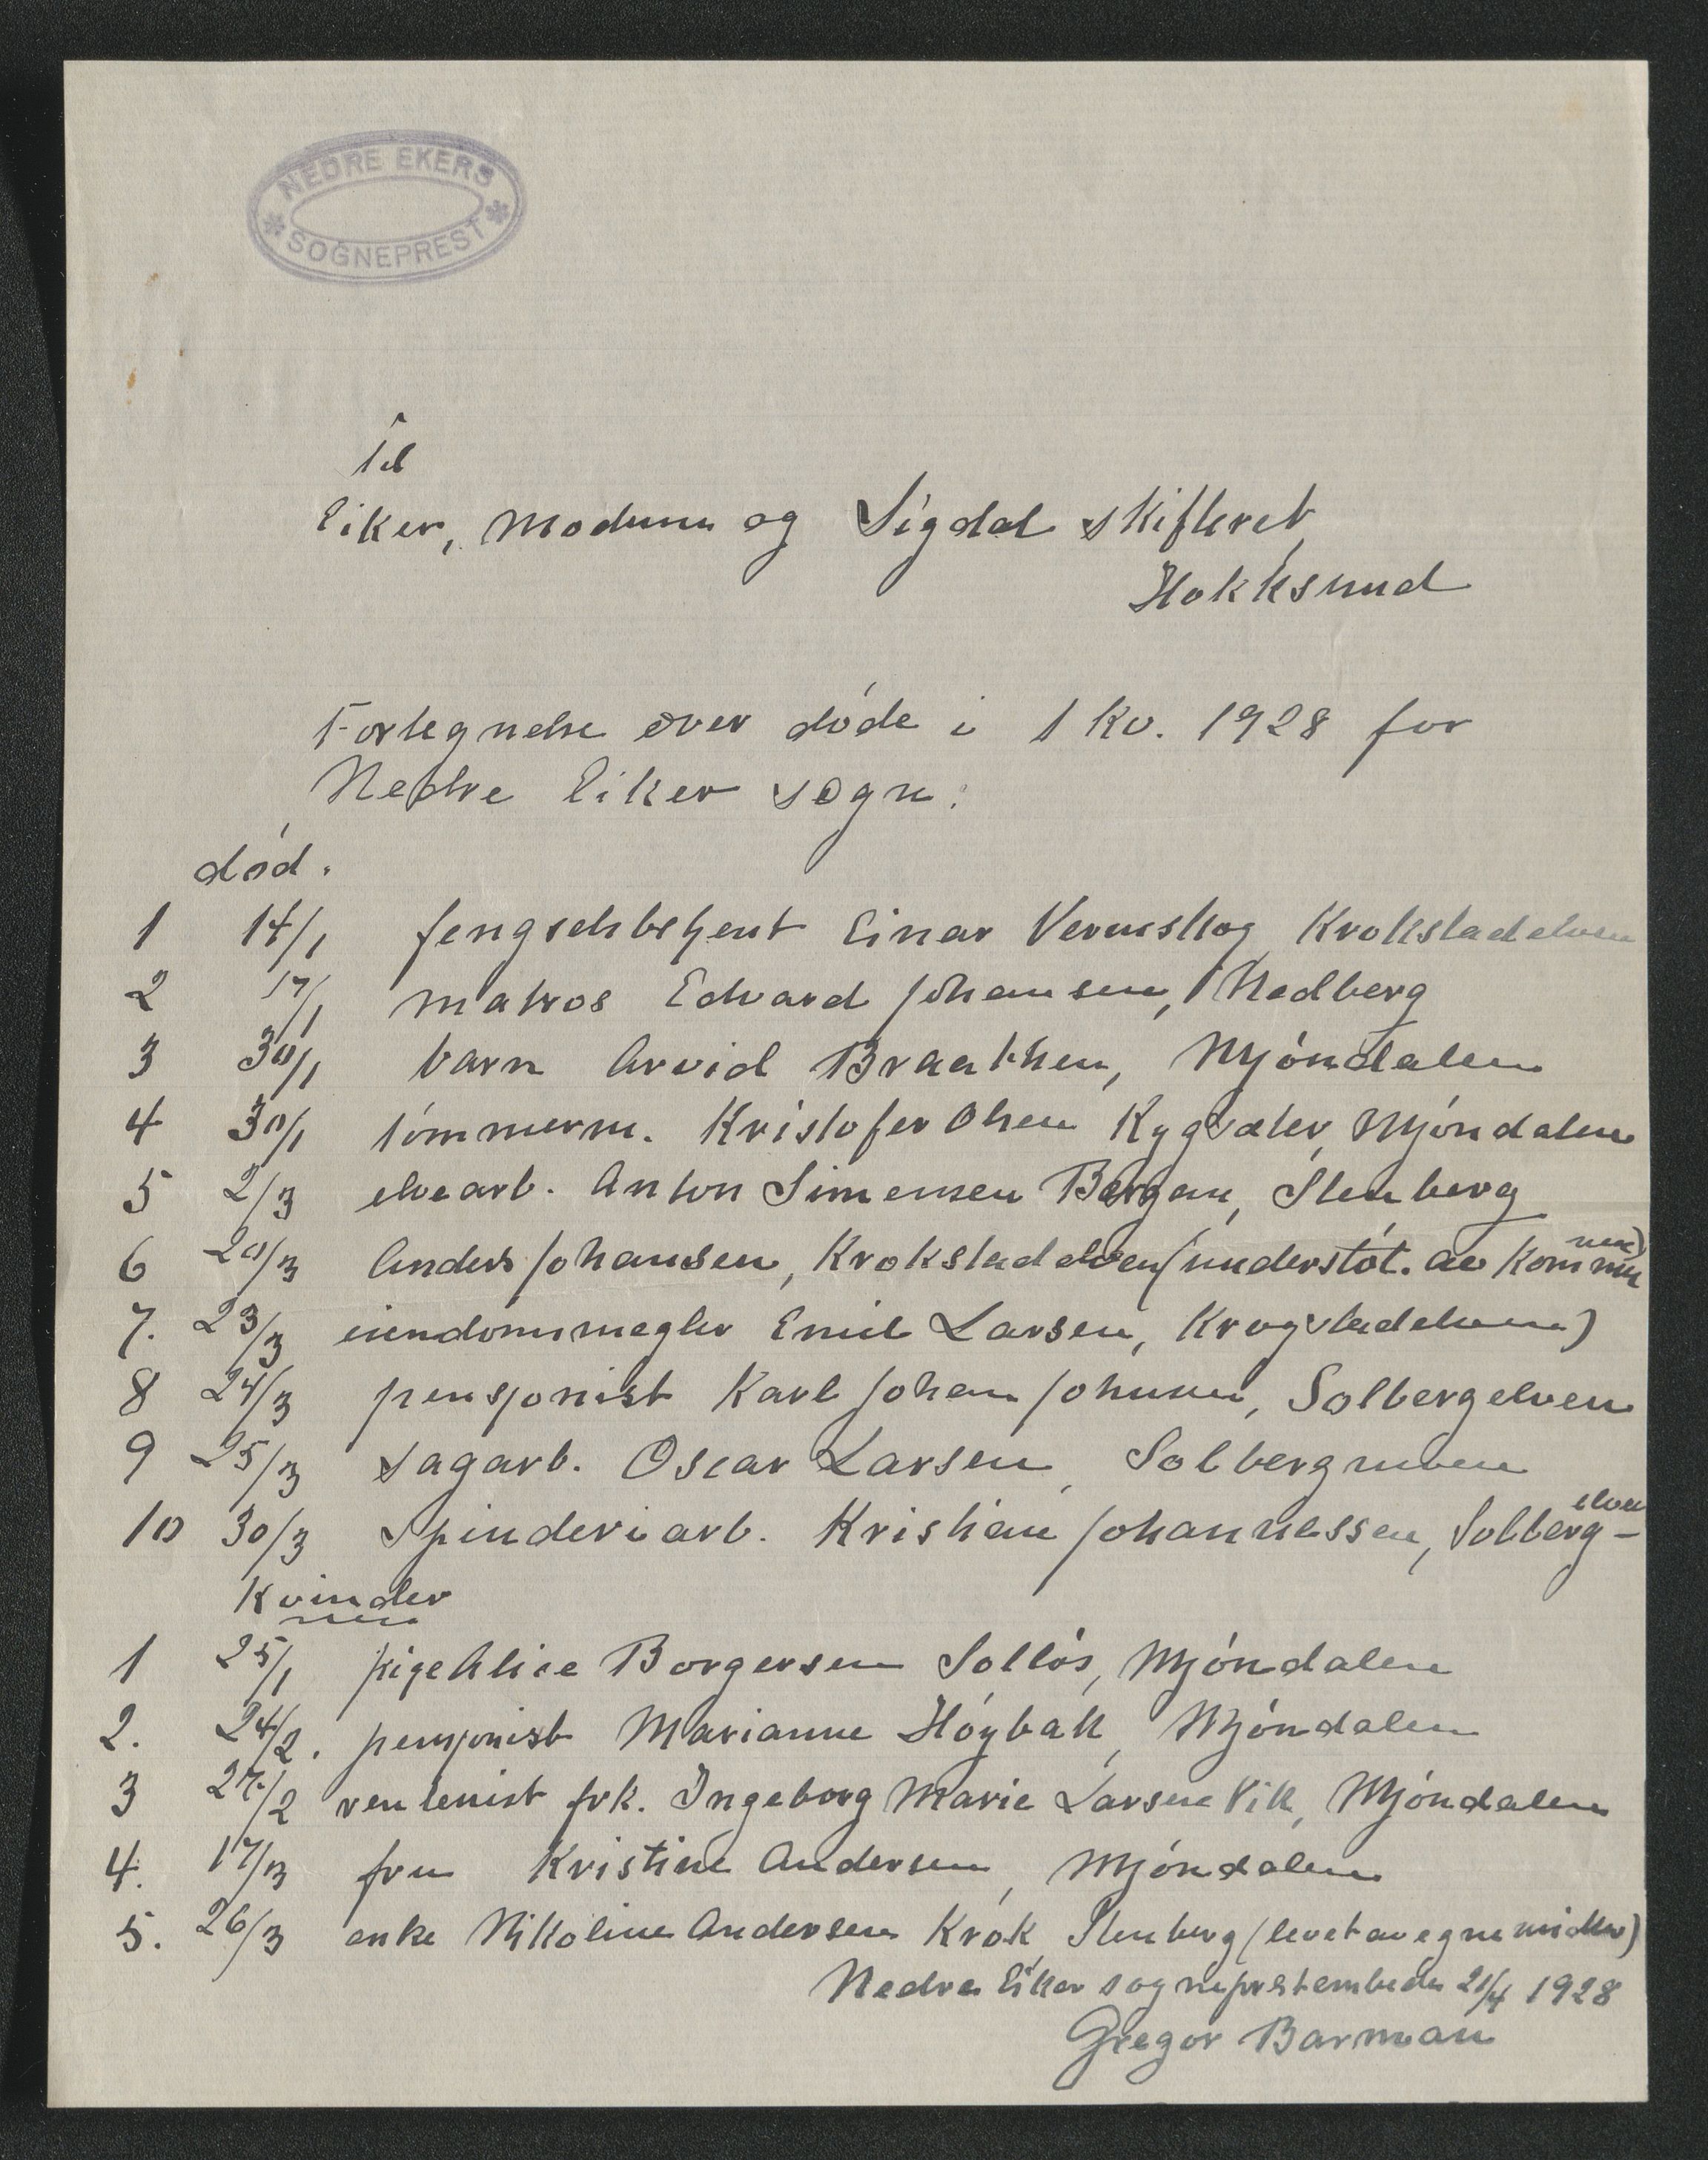 NEDRE EKERS
SOGNEPREST
Til
Eiker, Modum og Sigdal skifteret
Hokksund
Fortegnelse over døde i 1 kv. 1928 for
Nedre Eiker sogn:
død.
1 14/1 fengselsbetjent Einar Vermskog Krokstadelven
2 17/1 matros Edvard Johansen, Nedberg
3 30/1 barn Arvid Braathen, Mjøndalen
4 30/1 tømmerm. Kristofer Olsen Mjøndalen
5 2/3 elvearb. Anton Simensen Bergan, Stenberg
6 20/3 Anders Johansen, Krokstadelven (understøt. av kommunen)
7. 23/3 eiendomsmegler Emil Larsen, Krogstadelven)
8 24/3 pensjonist Karl Johan Johnsen, Solbergelven
9 25/3 sagarb. Oscar Larsen, Solbergmoen
10 30/3 Spinderiarb. Kristian Johannessen, Solberg-elven
Kvinder
1 25/1 pige Alice Borgersen Solløs, Mjøndalen
2. 24/2. pensjonist Marianne Høybak, Mjøndalen
3 27/2 rentenist frk. Ingeborg Marie Larsen Vik, Mjøndalen
4. 17/3 fru Kristine Andersen, Mjøndalen
5. 26/3 enke Nikoline Andersen Krok, Stenberg (levet av egne midler)
Nedre Eiker sogneprestembede 21/4 1928
Gregor Barman